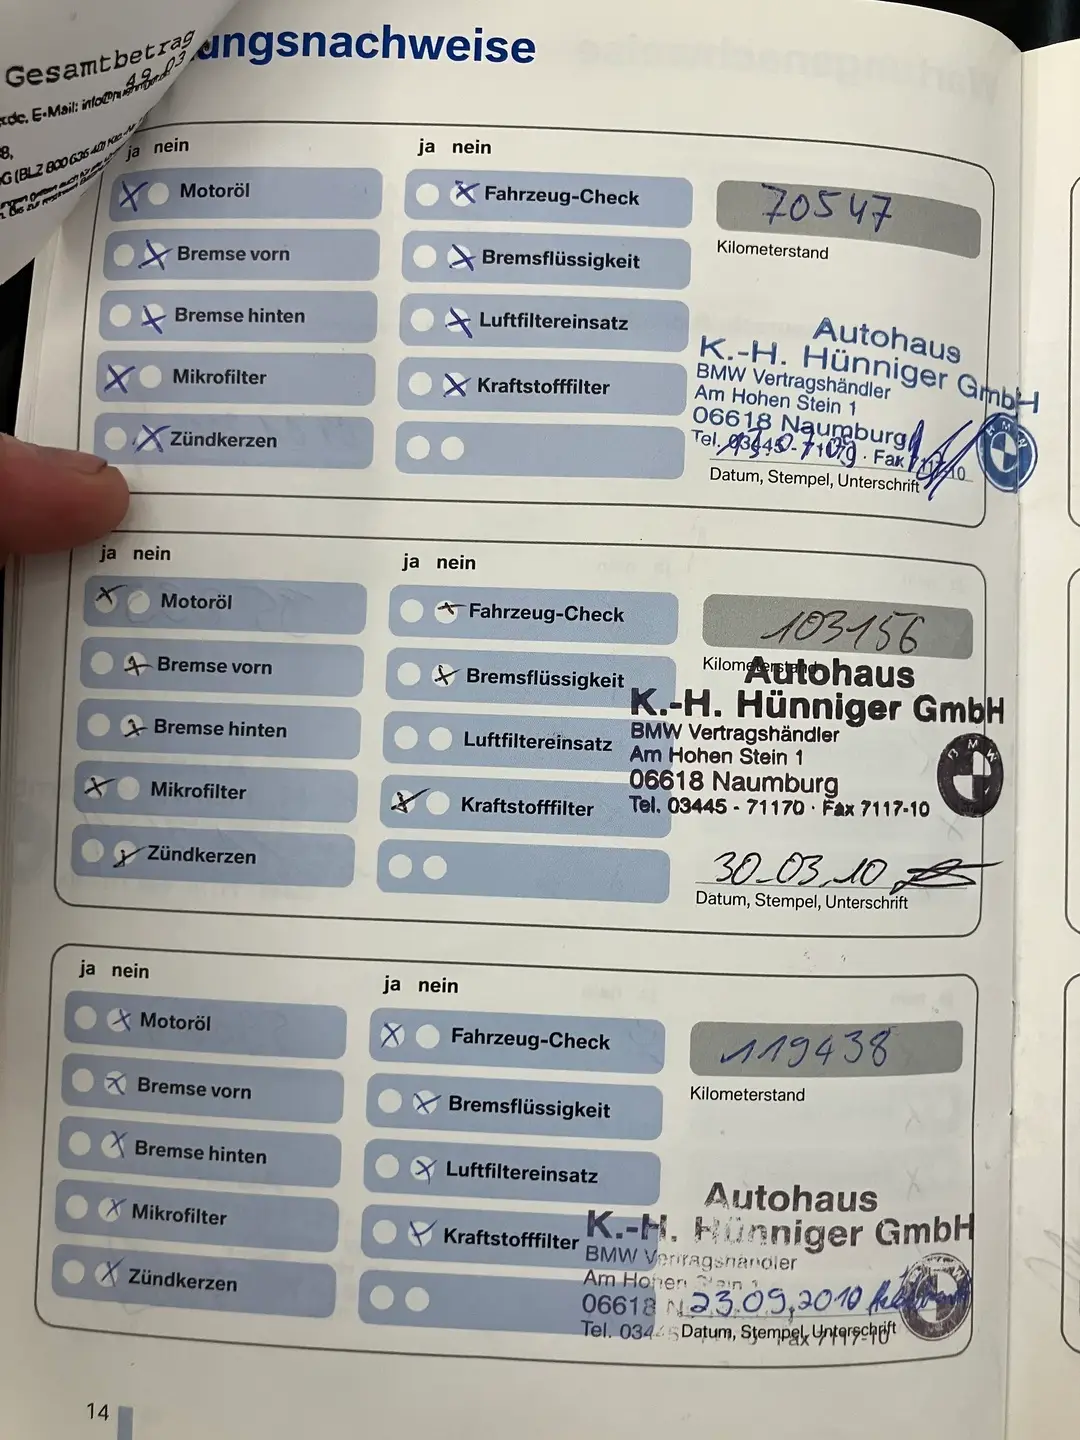 Gesamtbetrag
49,03
E-Mail: info@
8,
G (BLZ 800 636 40)
ungsnachweise
ja nein
Motoröl
Bremse vorn
Bremse hinten
Mikrofilter
Zündkerzen
ja nein
Fahrzeug-Check
Bremsflüssigkeit
Luftfiltereinsatz
Kraftstofffilter
70547
Kilometerstand
Autohaus
K.-H. Hünniger GmbH
BMW Vertragshändler
Am Hohen Stein 1
06618 Naumburg
Tel. 03445 - 71170 · Fax 7117-10
Datum, Stempel, Unterschrift
ja nein
Motoröl
Bremse vorn
Bremse hinten
Mikrofilter
Zündkerzen
ja nein
Fahrzeug-Check
Bremsflüssigkeit
Luftfiltereinsatz
Kraftstofffilter
103156
Kilometerstand
Autohaus
K.-H. Hünniger GmbH
BMW Vertragshändler
Am Hohen Stein 1
06618 Naumburg
Tel. 03445 - 71170 · Fax 7117-10
BMW
30.03.10
Datum, Stempel, Unterschrift
ja nein
Motoröl
Bremse vorn
Bremse hinten
Mikrofilter
Zündkerzen
ja nein
Fahrzeug-Check
Bremsflüssigkeit
Luftfiltereinsatz
Kraftstofffilter
119438
Kilometerstand
Autohaus
K.-H. Hünniger GmbH
BMW Vertragshändler
Am Hohen Stein 1
06618 N
23.09.2010
Tel. 03445 Fax 7117-10
Datum, Stempel, Unterschrift
14